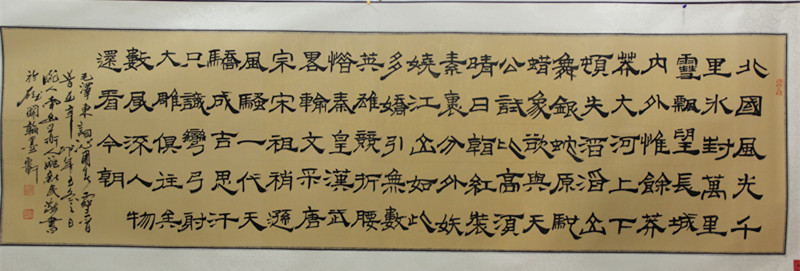 北國風光千
里冰封萬里
雪飄望長城
内外惟餘莽
莽大河上下
頓失滔滔山
舞銀蛇原馳
蜡象欲與天
公試比高須
晴日看紅裝
素裹分外妖
嬈江山如此
多嬌引無數
英雄競折腰
惜秦皇漢武
畧輸文采唐
宗宋祖稍遜
風騷一代天
驕成吉思汗
只識彎弓射
大雕俱往矣
數風流人物
還看今朝
毛澤東詞沁園春